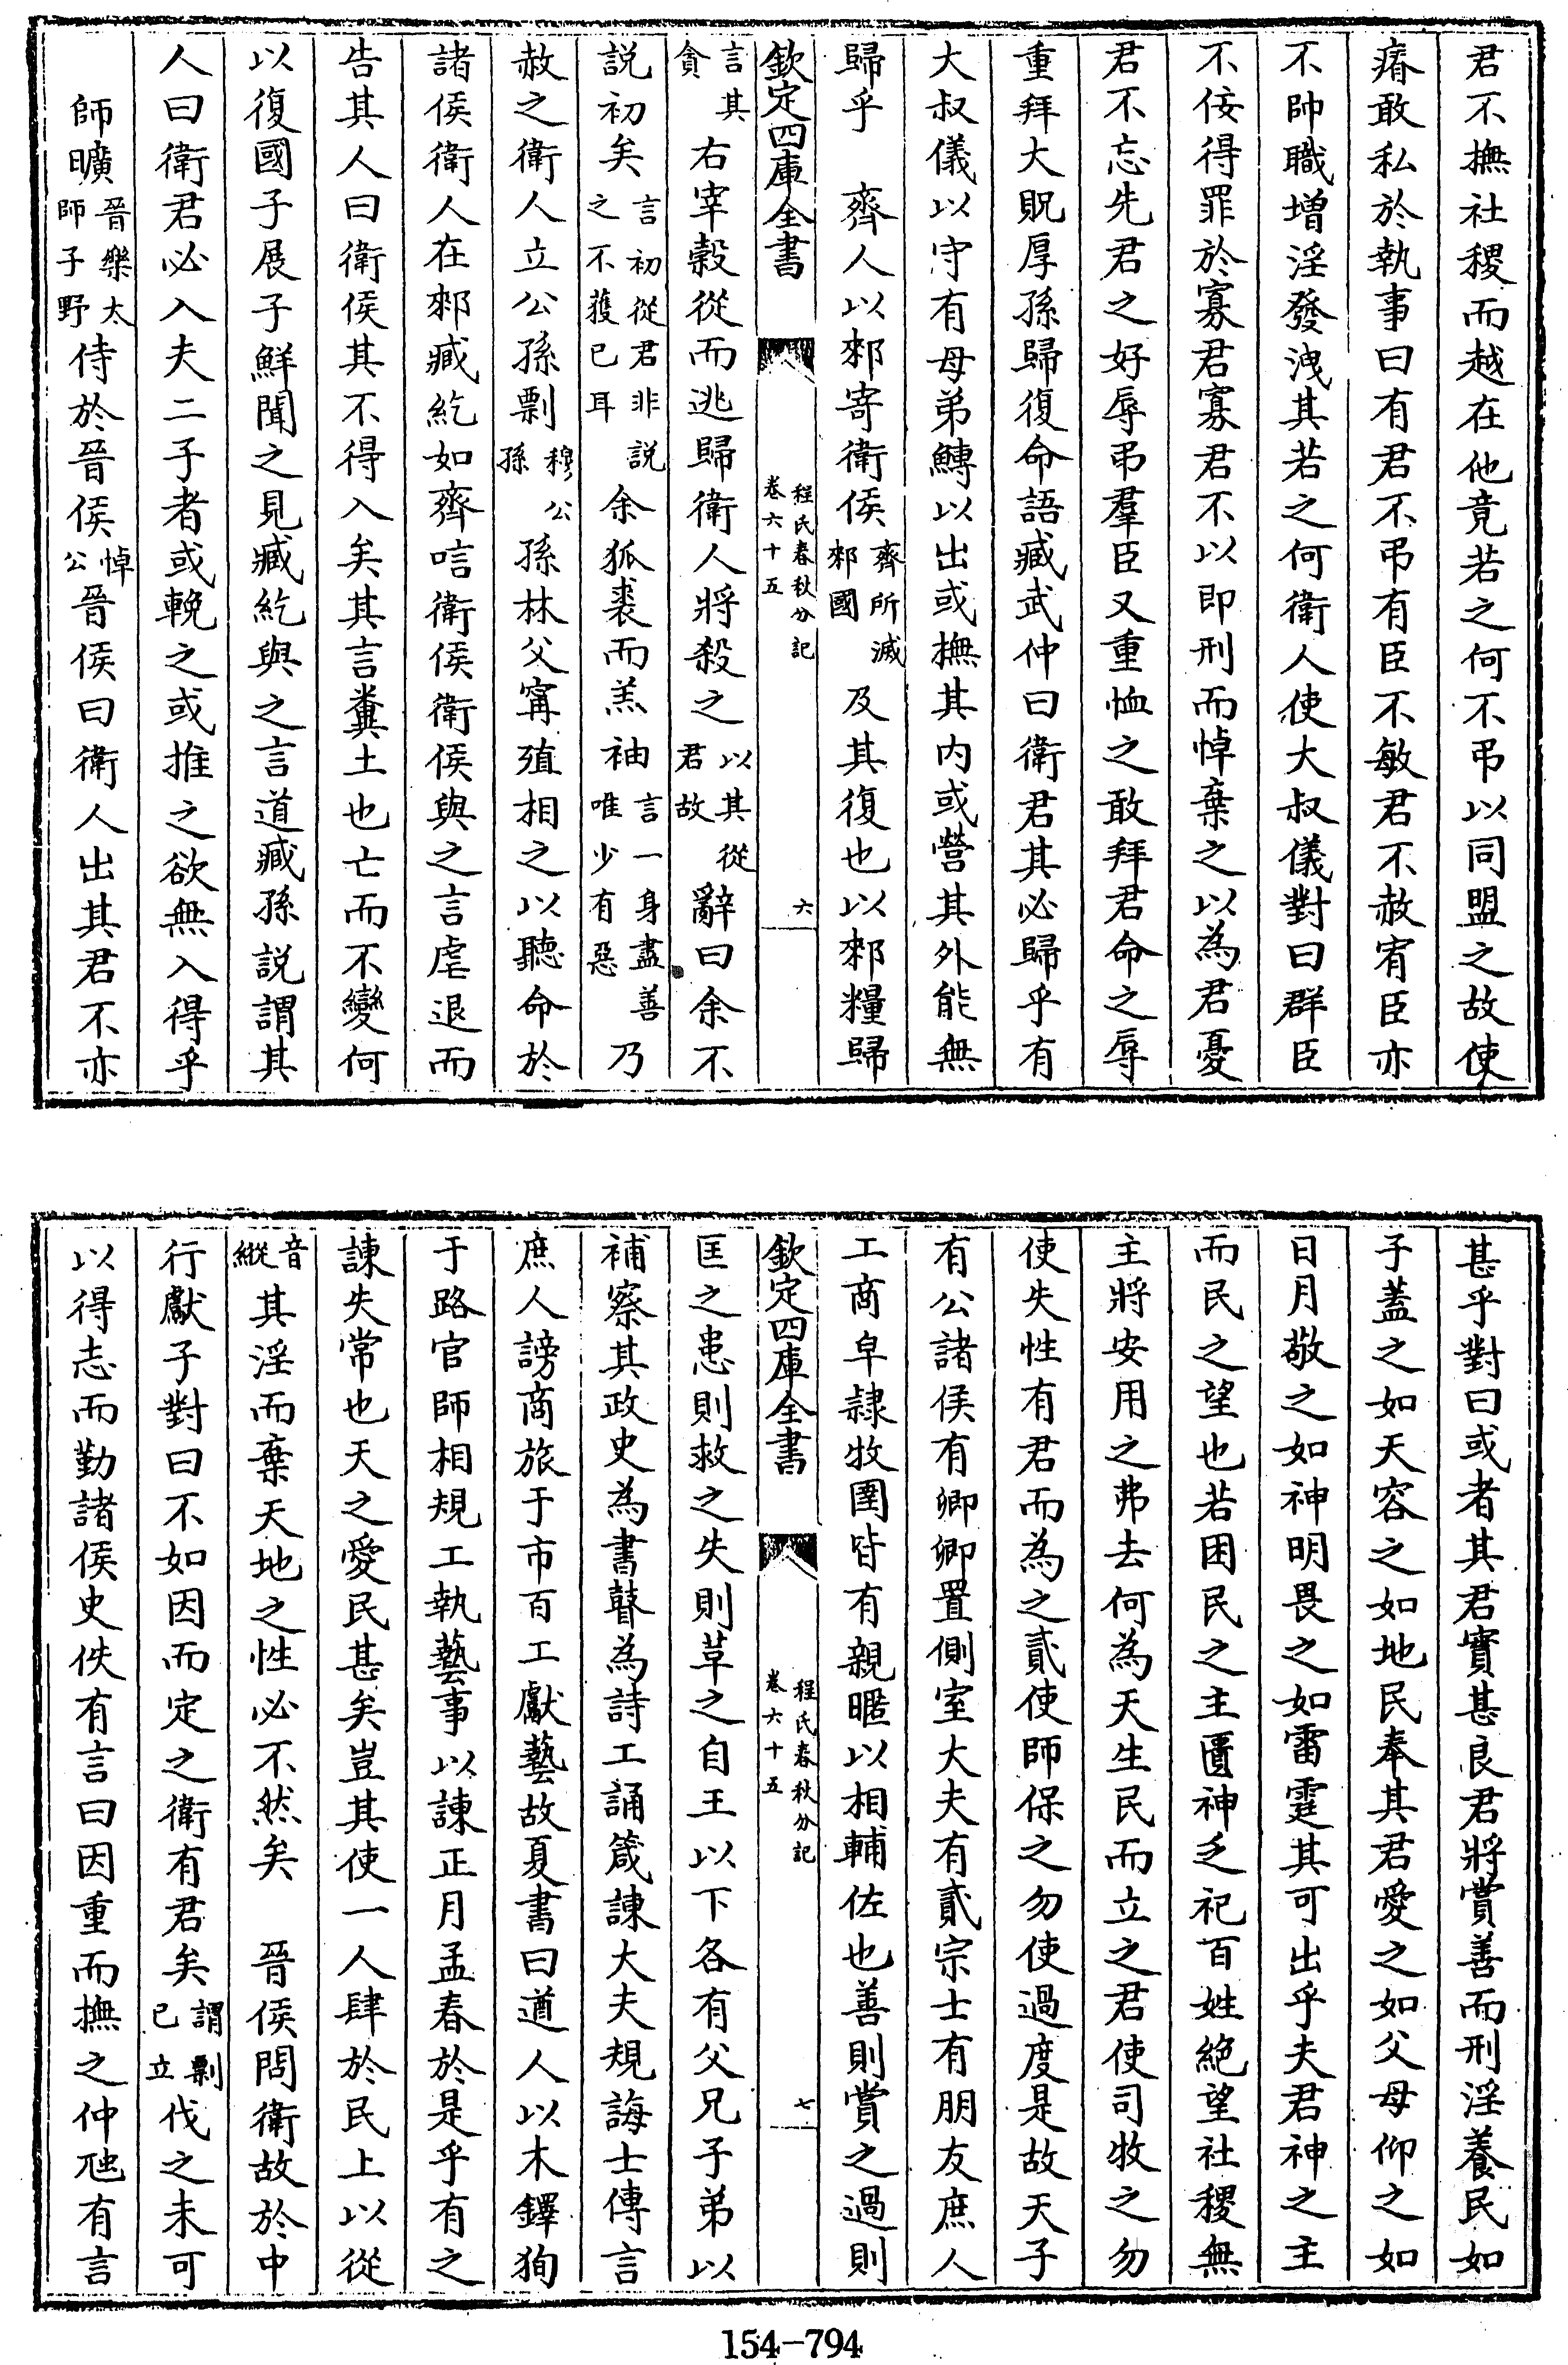 君不撫社稷而越在他竟若之何不弔以同盟之故使
瘠敢私於執事曰有君不弔有臣不敏君不赦宥臣亦
不帥職增淫發洩其若之何衛人使大叔儀對曰群臣
不佞得罪於寡君寡君不以即刑而悼棄之以為君憂
君不忘先君之好辱弔羣臣又重恤之敢拜君命之辱
重拜大貺厚孫歸復命語臧武仲曰衛君其必歸乎有
大叔儀以守有母弟鱄以出或撫其内或營其外能無
歸乎　齊人以郲寄衛侯齊所滅郲國及其復也以郲糧歸
欽定四庫全書　程氏春秋分記卷六十五　六
言其貪右宰穀從而逃歸衛人將殺之以其從君故辭曰余不
説初矣言初從君非説之不獲已耳余狐裘而羔袖言一身盡善唯少有惡乃
赦之衛人立公孫剽穆公孫孫林父甯殖相之以聽命於
諸侯衛人在郲臧紇如齊唁衛侯衛侯與之言虐退而
告其人曰衛侯其不得入矣其言糞土也亡而不變何
以復國子展子鮮聞之見臧紇與之言道臧孫説謂其
人曰衛君必入夫二子者或輓之或推之欲無入得乎
師曠晉樂太師子野侍於晉侯悼公晉侯曰衛人出其君不亦
甚乎對曰或者其君實甚良君將賞善而刑淫養民如
子蓋之如天容之如地民奉其君愛之如父母仰之如
日月敬之如神明畏之如雷霆其可出乎夫君神之主
而民之望也若困民之主匱神乏祀百姓絶望社稷無
主將安用之弗去何為天生民而立之君使司牧之勿
使失性有君而為之貳使師保之勿使過度是故天子
有公諸侯有卿卿置側室大夫有貳宗士有朋友庶人
工商皁隷牧圉皆有親暱以相輔佐也善則賞之過則
欽定四庫全書　程氏春秋分記卷六十五　七
匡之患則救之失則革之自王以下各有父兄子弟以
補察其政史為書瞽為詩工誦箴諫大夫規誨士傳言
庶人謗商旅于市百工獻藝故夏書曰遒人以木鐸狥
于路官師相規工執藝事以諫正月孟春於是乎有之
諫失常也天之愛民甚矣豈其使一人肆於民上以從
音縱其淫而棄天地之性必不然矣　晉侯問衛故於中
行獻子對曰不如因而定之衛有君矣謂剽已立伐之未可
以得志而勤諸侯史佚有言曰因重而撫之仲虺有言
154-794